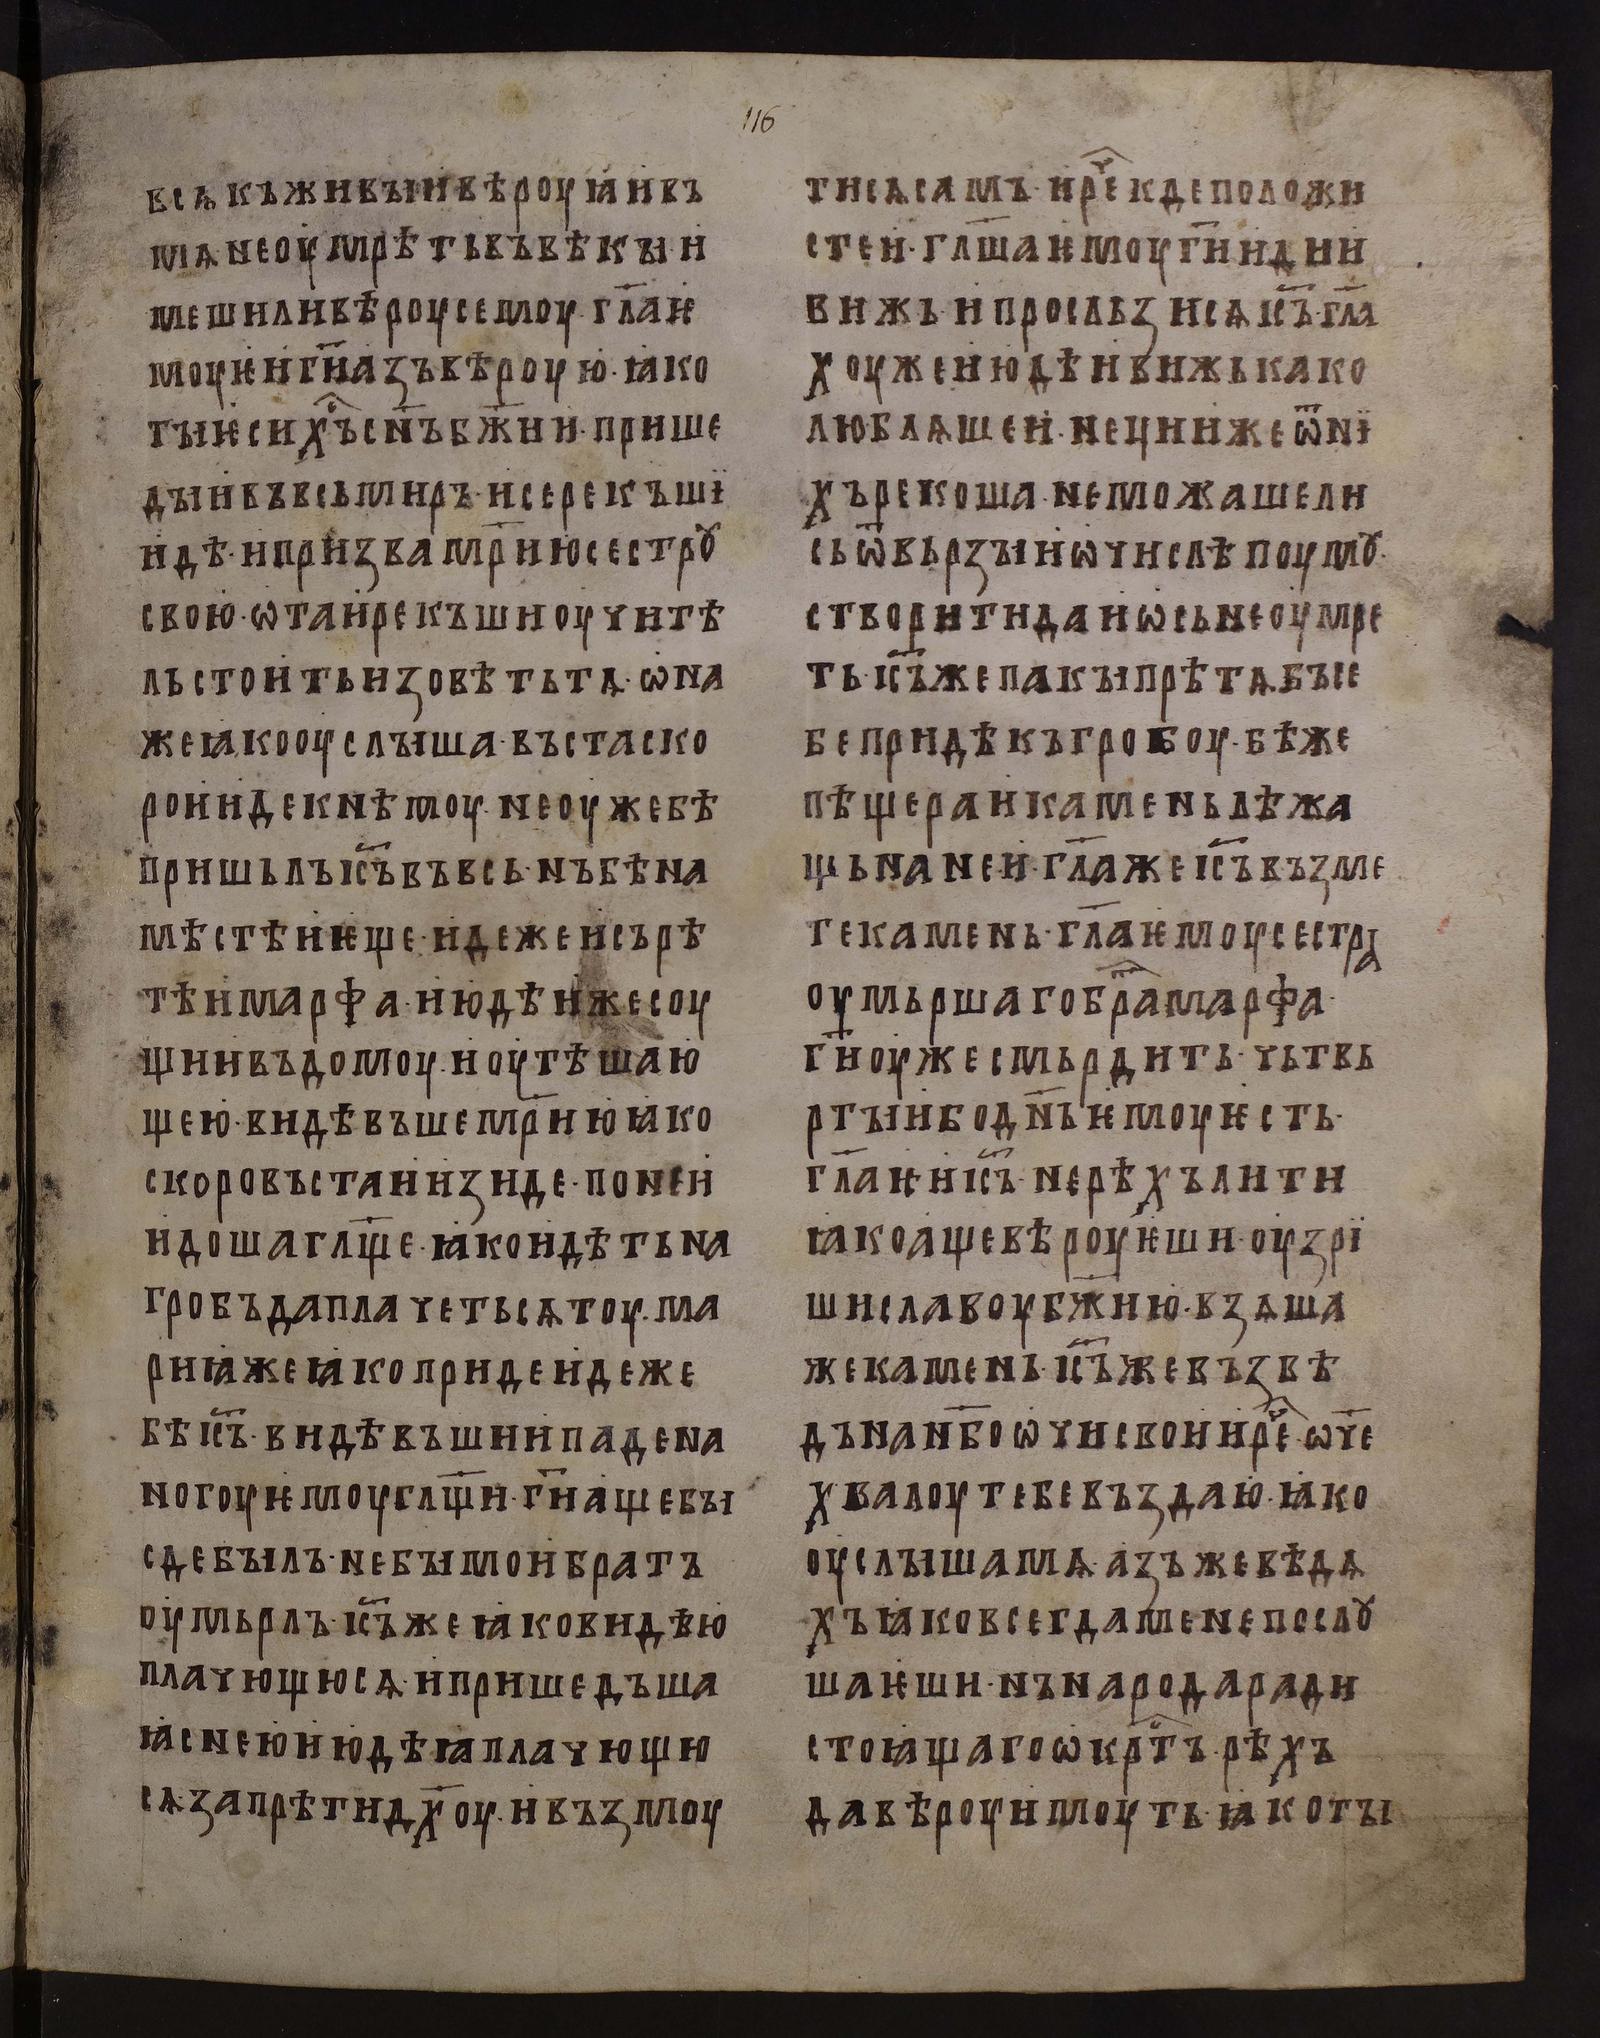 116
всѧкъживыиивѣроуꙗивъ
мѧнеоумрѣтьвъвѣкы·и
мешиливѣроусемоу·гл҃аѥ
моуѥиг҃иазъвѣроую·ꙗко
тыѥсих҃ъсн҃ъбж҃ии·прише
дыивъвсьмиръ·исерекъшї
идѣ·ипризвамр҃июсестрꙋ
свою·ѡтаирекъшиоучитѣ
льстоитьизовѣтьтѧ·ѡна
жеꙗкооуслыша·въстаско
роиидекнѣмоу·неоужебѣ
пришьлъіс҃ъвъвсь·нъбѣна
мѣстѣиѥще·идежеисърѣ
тѣимарфа·июдѣижесоу
щиивъдомоу·иоутѣшаю
щею·видѣвъшемр҃июꙗко
скоровъстаиизиде·понеи
идошагл҃ще·ꙗкоидѣтьна
гробъдаплачетьсѧтоу·ма
риꙗжеꙗкоприденндеже
бѣіс҃ъ·видѣвъшиипадена
ногоуѥмоугл҃щи·г҃иащебы
сдебылъ·небымоибратъ
оумьрлъ·іс҃ъжеꙗковидѣю
плачющюсѧ·ипришедъша
ꙗснеюиюдѣꙗплачющю
сѧзапрѣтидх҃оу·ивъзмоу
тисѧсамъ·ирⷱ҇екдеположи
стеи·гл҃шаѥмоуг҃иидии
вижь·ипросльзисѧіс҃ъ·гл҃а
хоужеиюдѣивижькако
люблѧшеи·нециижеѿнї
хърекоша·неможашели
сьѿвьрзыиѡчислѣпоумꙋ·
створитидаиѡсьнеоумре
ть·іс҃ъжепакыпрѣтѧбъсе
бепридѣкъгробоу·бѣже
пѣщераикаменьлѣжа
щьнанеи·гл҃ажеіс҃ъвъзме
текамень·гл҃аѥмоусестра
оумьршагобр҃амарфа·
г҃иоужесмьрдить·чьтвь
ртыибодн҃ьѥмоуѥсть·
гл҃аѥиіс҃ъ·нерѣхълити
ꙗкоащевѣроуѥши·оузрї
шиславоубж҃ию·взѧша
жекамень·іс҃ъжевъзвѣ
дънан҃боѡчисвоиирⷱ҇е·ѡч҃е
хвалоутебевъздаю·ꙗко
оуслышамѧ·азъжевѣдѧ
хъꙗковсегдаменепослꙋ
шаѥши·нънародаради
стоꙗщагоѡкр҃тъ·рѣхъ
давѣроуимоуть·ꙗкоты